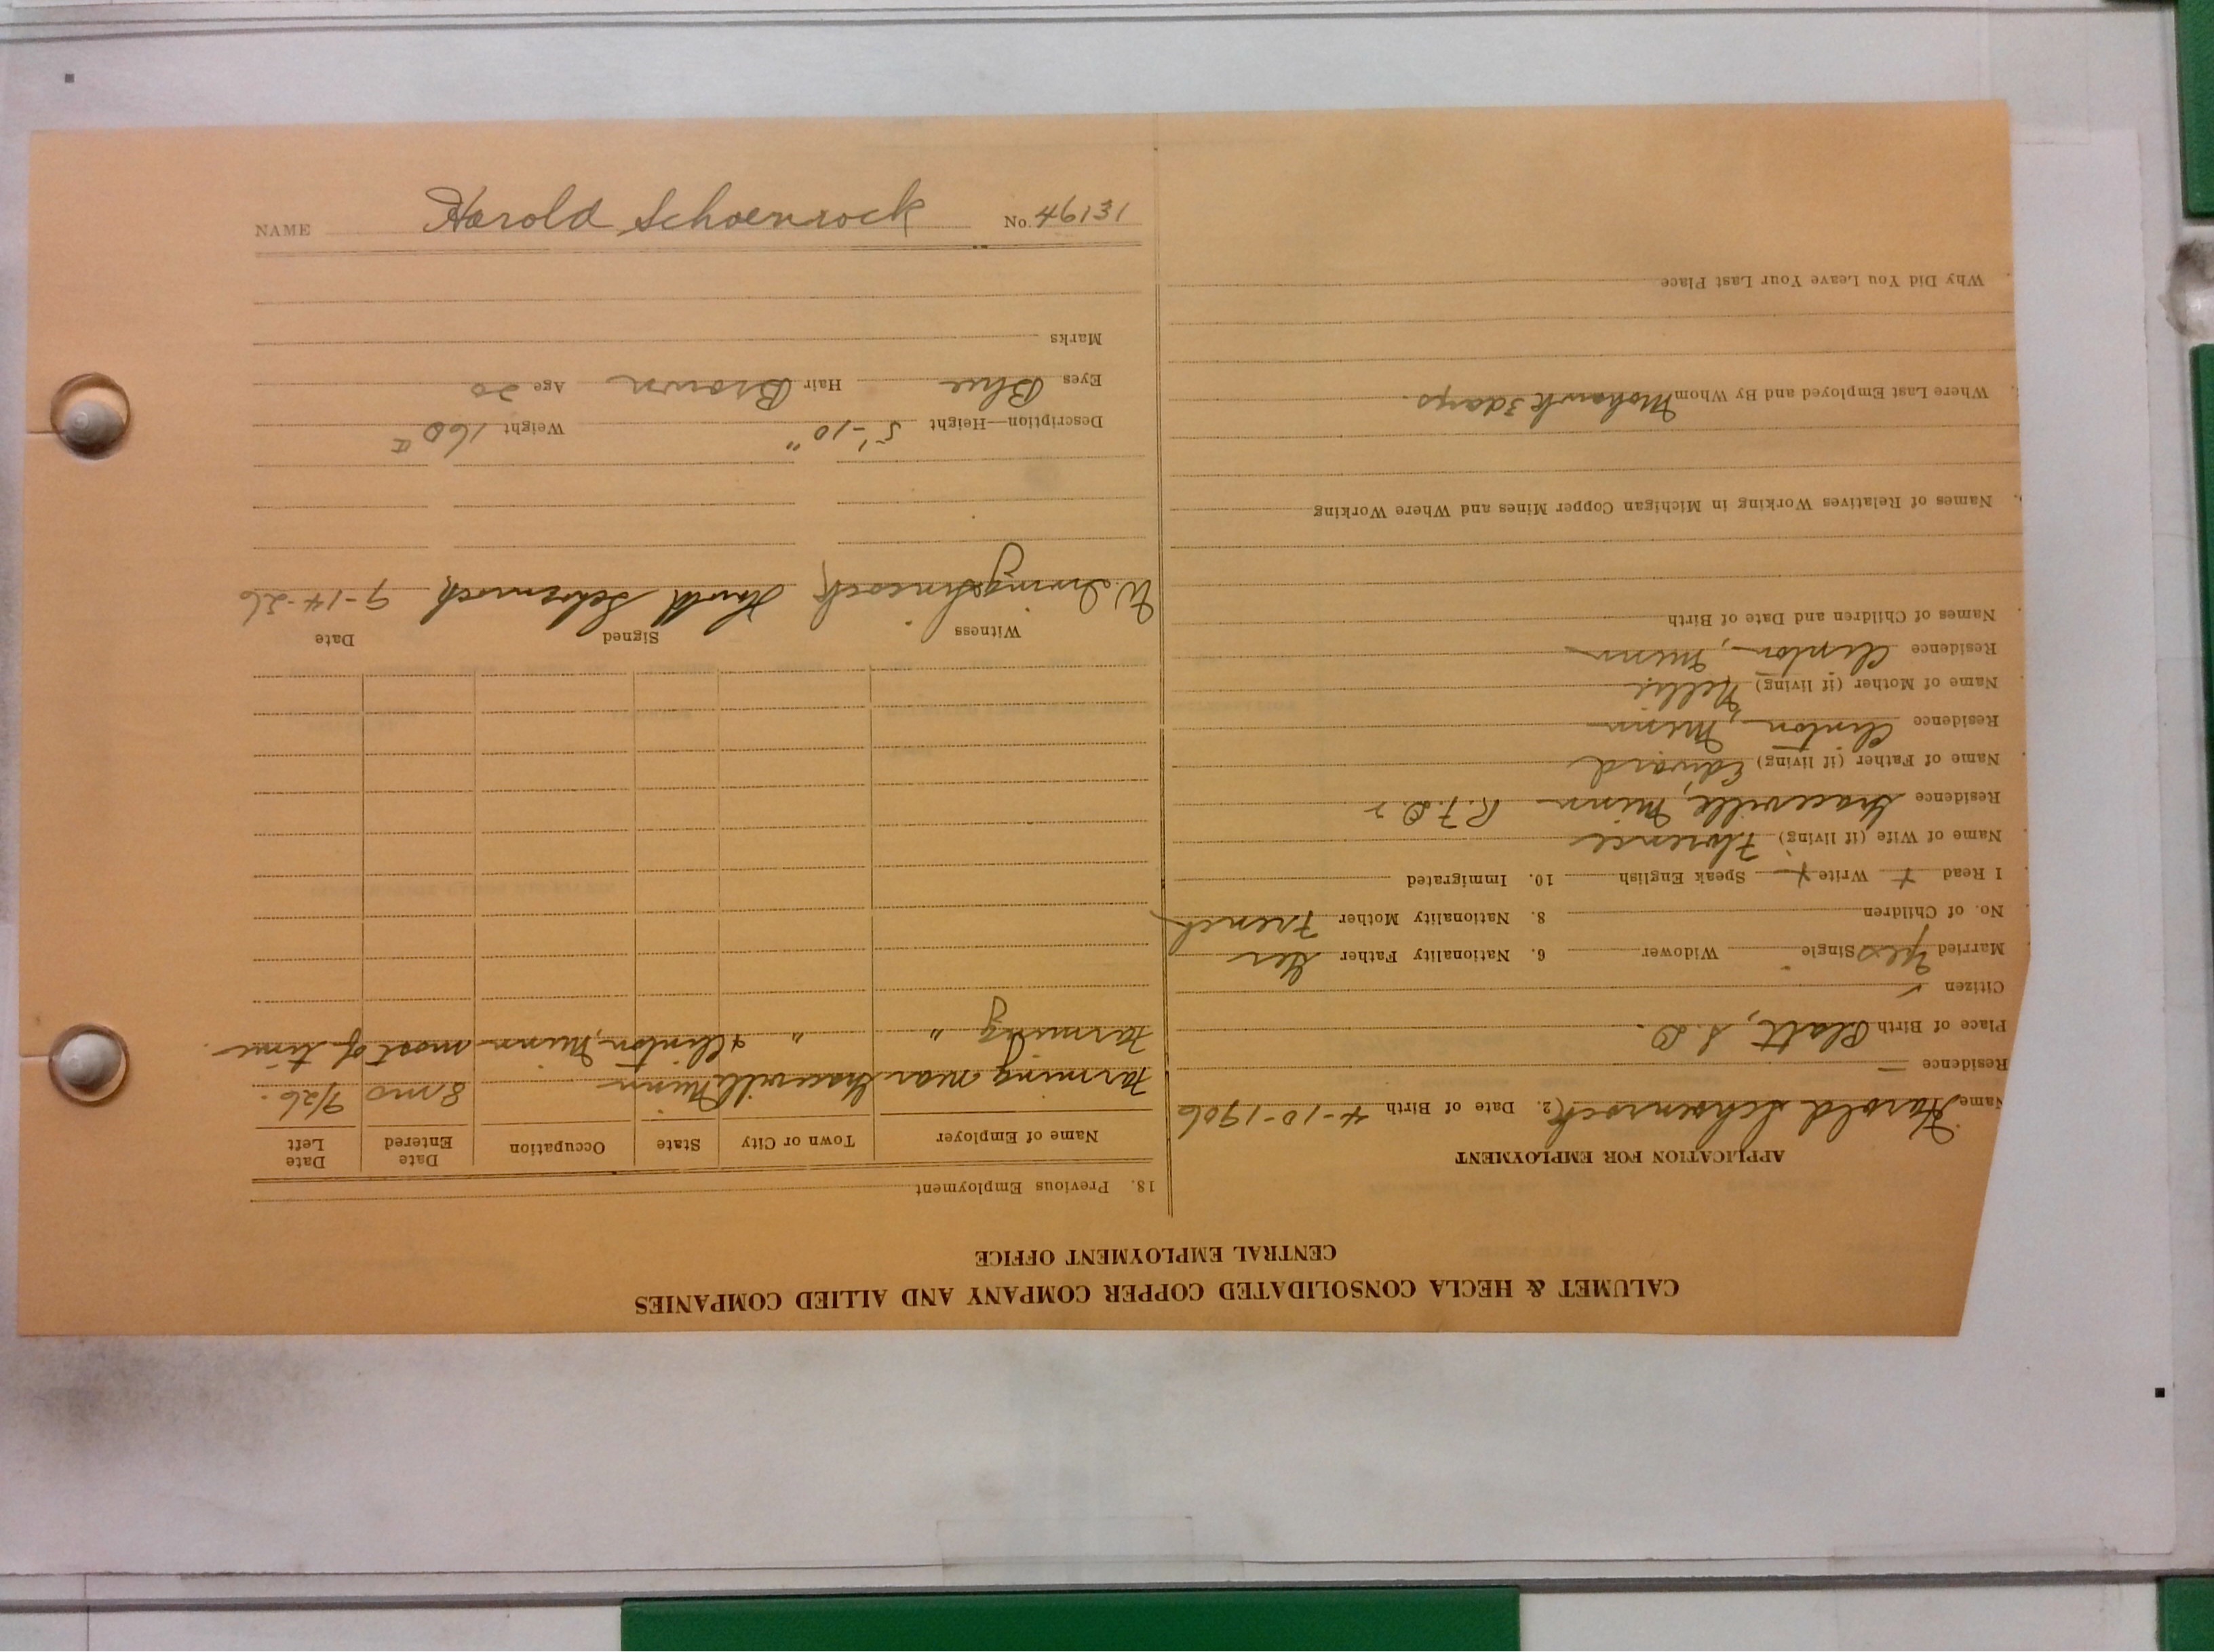 CALUMET & HECLA CONSOLIDATED COPPER COMPANY AND ALLIED COMPANIES
CENTRAL EMPLOYMENT OFFICE
APPLICATION FOR EMPLOYMENT
Name Harold Schoenrock 2. Date of Birth 4-10-1906
Residence —
Place of Birth Platt, S.D.
Citizen ✓
Married yes Single Widower 6. Nationality Father Ger
No. of Children 8. Nationality Mother French
I Read + Write + Speak English 10. Immigrated
Name of Wife (if living) Florence
Residence Graceville, Minn R.F.D. 2
Name of Father (if living) Edward
Residence Clinton, Minn
Name of Mother (if living) Nellie
Residence Clinton, Minn
Names of Children and Date of Birth
Names of Relatives Working in Michigan Copper Mines and Where Working
Where Last Employed and By Whom Mohawk 3 days.
Why Did You Leave Your Last Place
18. Previous Employment
Name of Employer Town or City State Occupation Date Entered Date Left
Farming near Graceville Minn 8 mo 9/26.
Farming " " & Clinton, Minn most of time.
Witness Signed Date
W. Irving Harold Schoenrock 9-14-26
Description—Height 5'-10" Weight 160 #
Eyes Blue Hair Brown Age 20
Marks
NAME Harold Schoenrock No. 46131